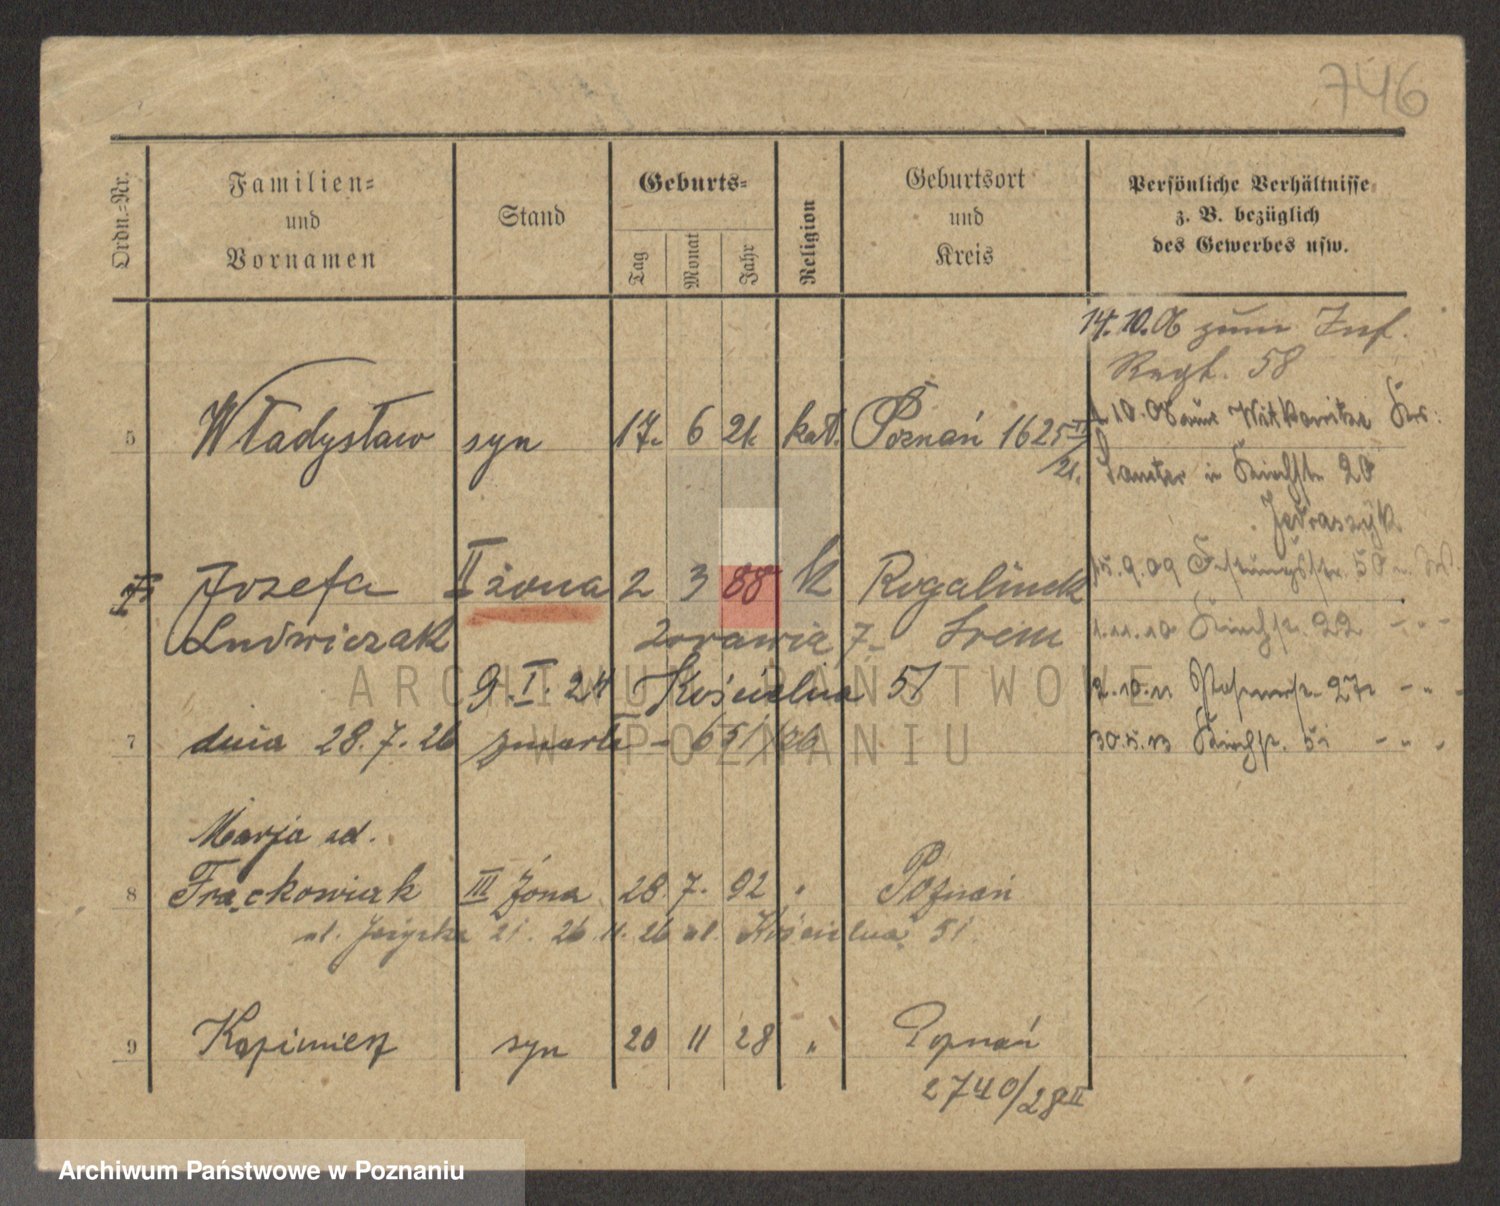 746
Ordn.-Nr.
Familien-
und
Vornamen
Stand
Geburts-
Tag
Monat
Jahr
Religion
Geburtsort
und
Kreis
Persönliche Verhältnisse
z. B. bezüglich
des Gewerbes usw.
14.10.06 zum Inf.
Regt. 58
5 Władysław syn 17. 6 21. kat. Poznań 1625 II/21.
10.08 aus
in Kirchstr. 20
II żona
Józefa 2 3 88 k Rogalinek
15.9.09 Festungsstr. 50
Ludwiczak Żórawia 7 Śrem
1.11.10 Kirchstr. 22 - " -
9.I.24 Kościelna 51
2.10.11 27 - " -
7 dnia 28.7.26 zmarła - 651/26
30.5.13 Kirchstr. 51 - " -
Marja ad.
8 Frąckowiak III żona 28. 7. 92 " Poznań
ul. 21. 26.11.26 ul. Kościelna 51.
9 Kazimierz syn 20 11 28 " Poznań
2740/28 II
ARCHIWUM PAŃSTWOWE
W POZNANIU
Archiwum Państwowe w Poznaniu